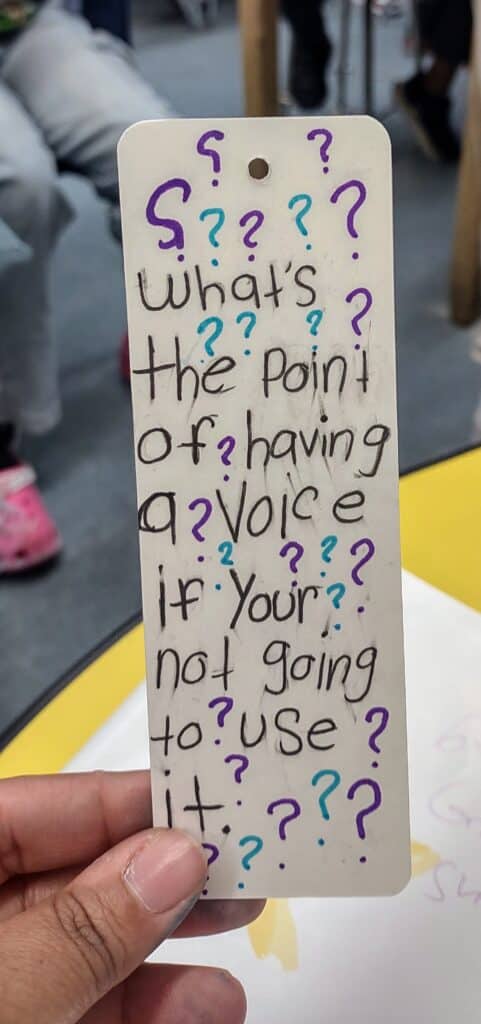 ? ?
? ? ? ? ?
What's
? ? ? ?
the point
of ? having
a ? Voice
? ? ? ?
if Your ?
not going
to ? use ?
?
it. ? ? ?
? ?